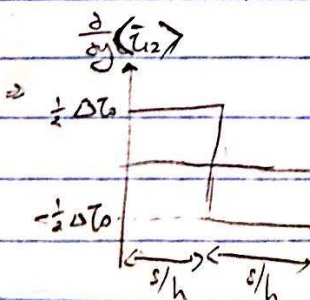 ∂/∂y ⟨τ̄₁₂⟩
⇒
½ Δτ₀
-½ Δτ₀
s/h s/h